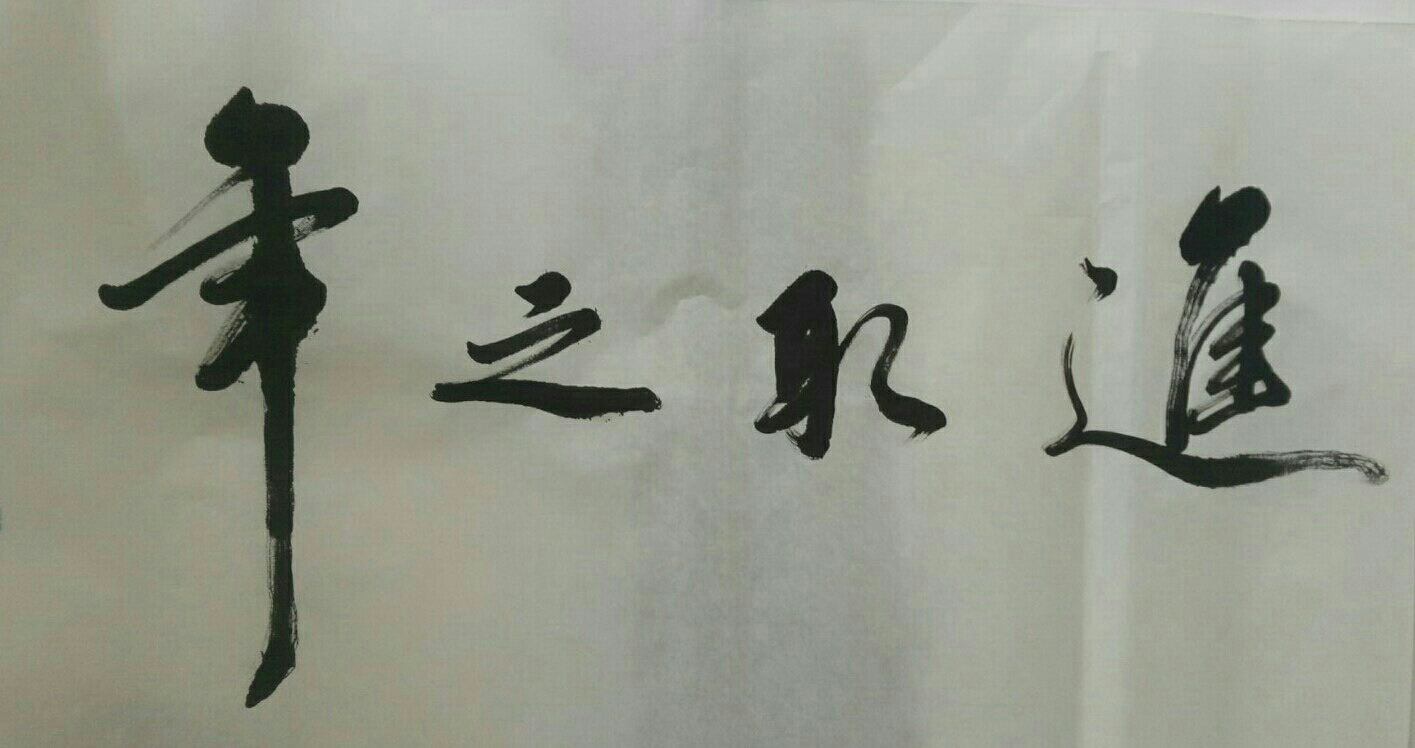 進取之年